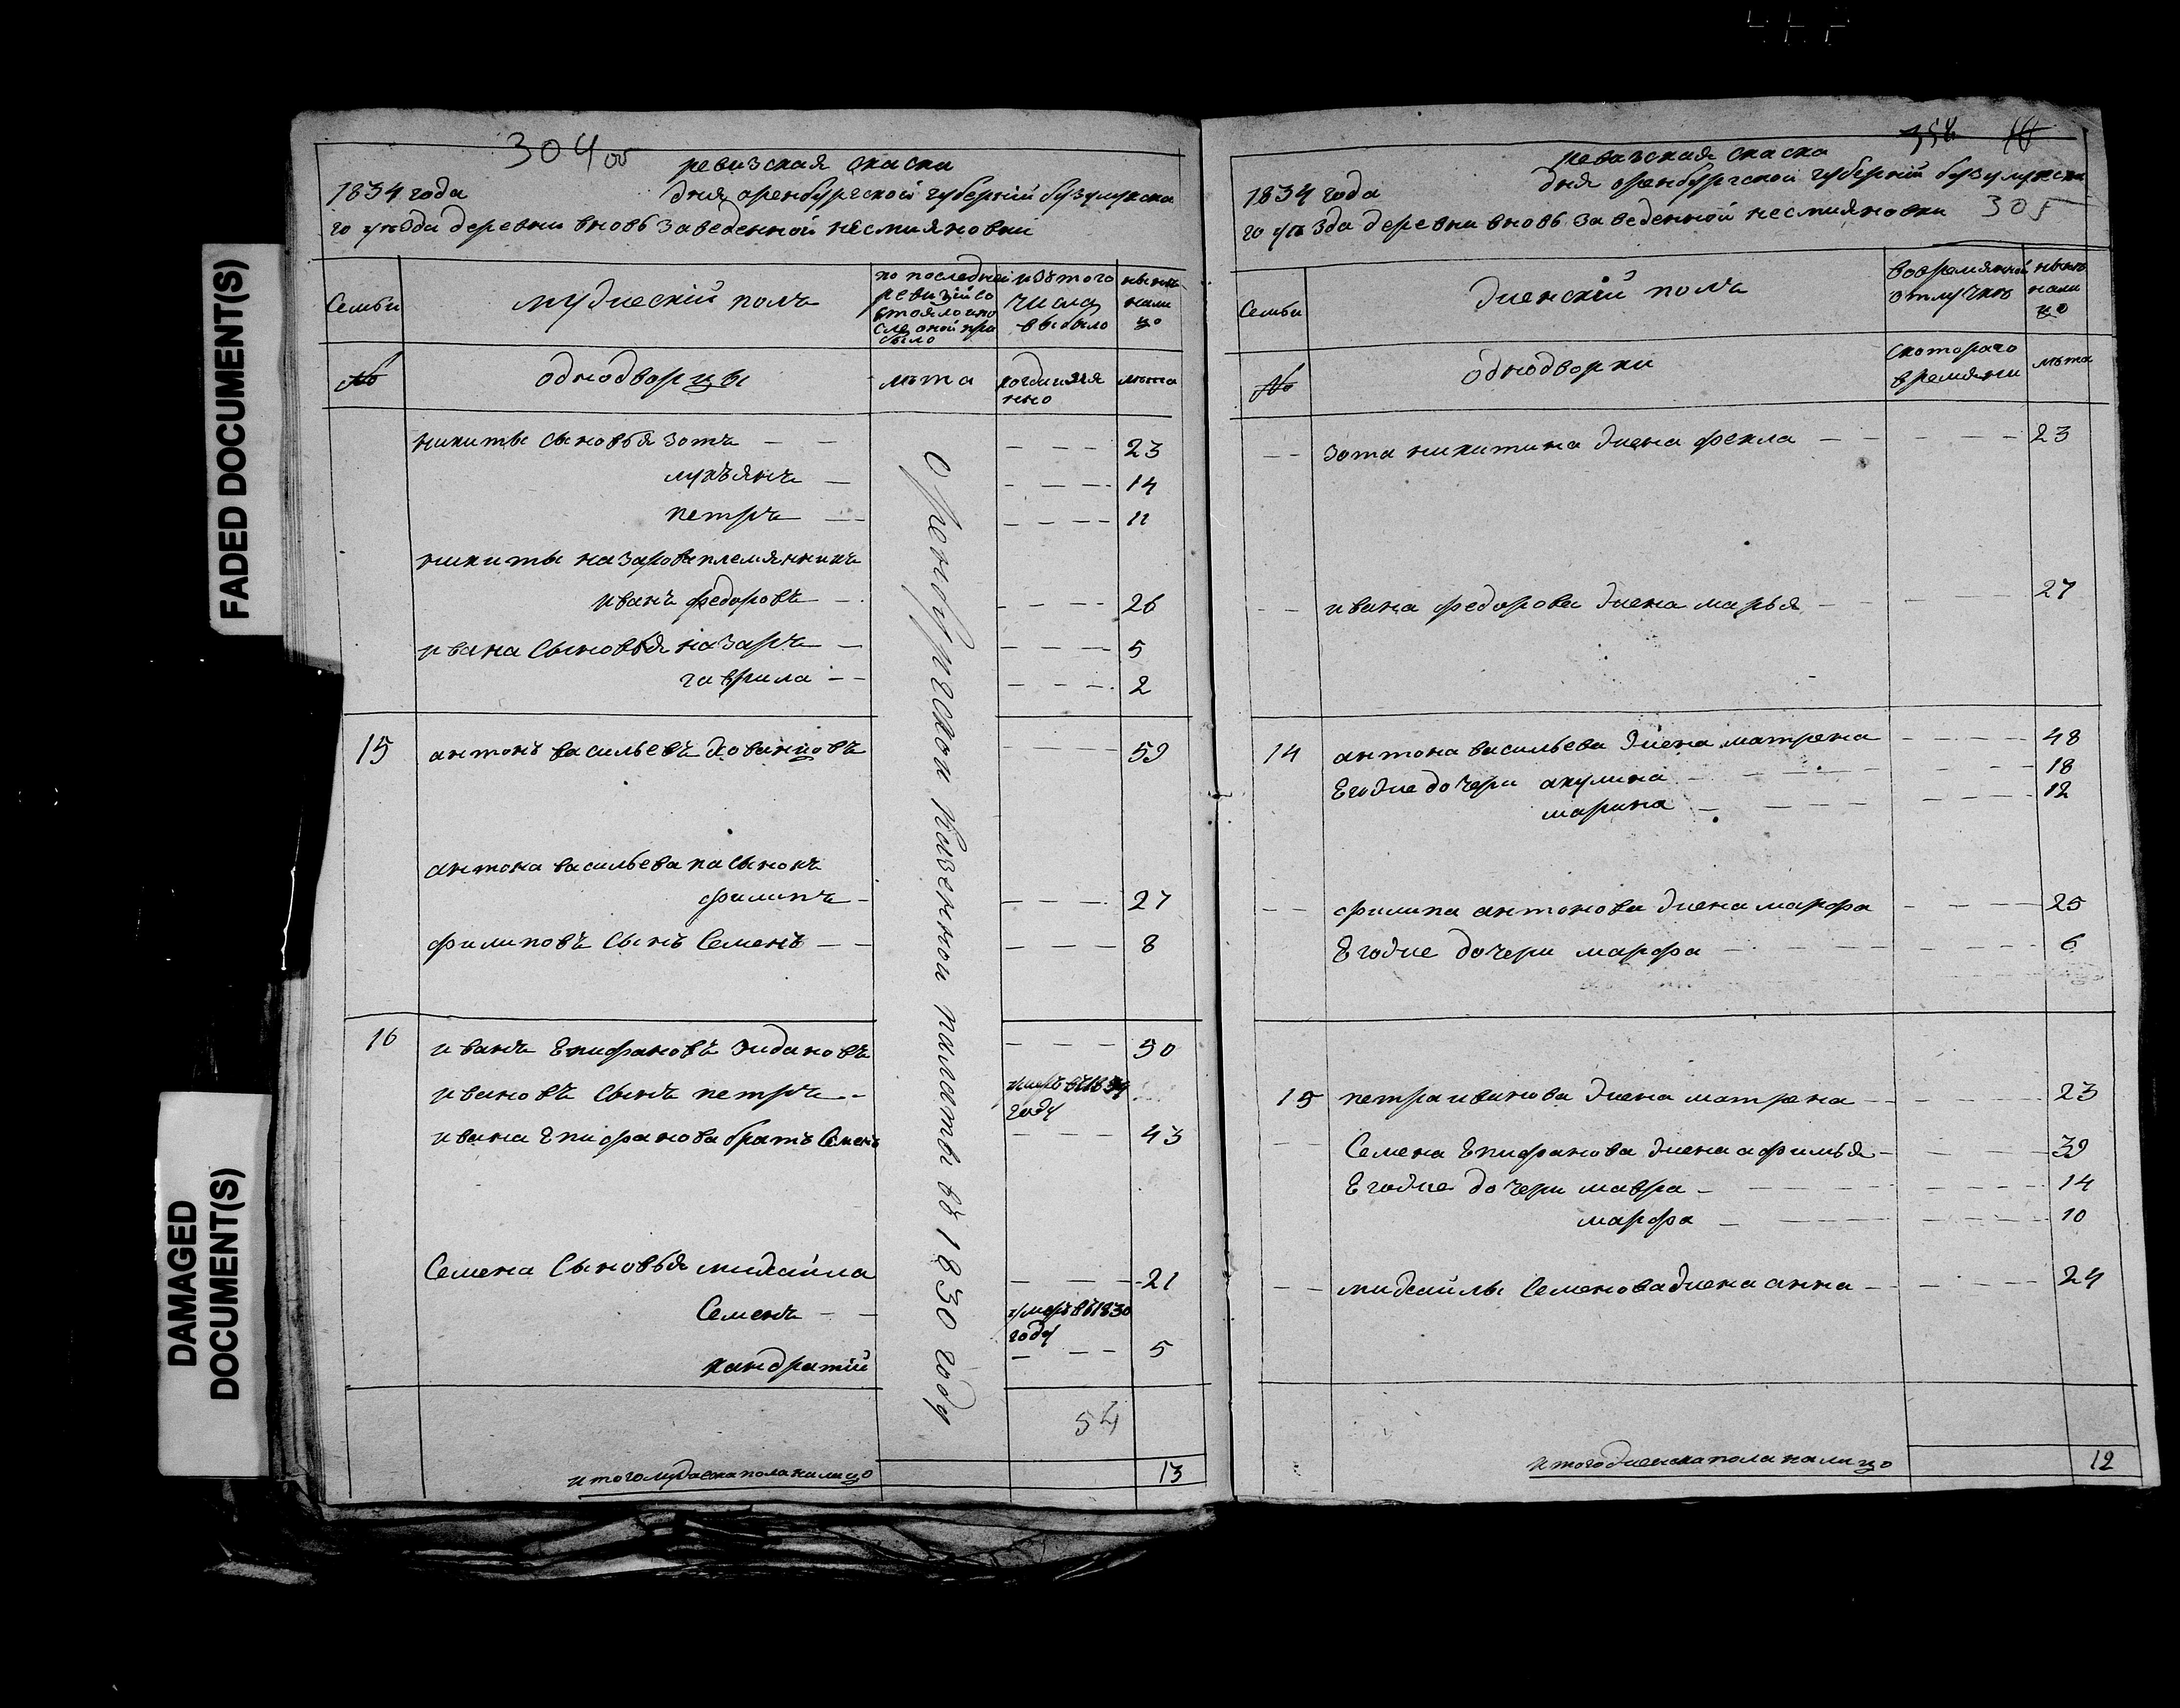 FADED DOCUMENT(S)
DAMAGED
DOCUMENT(S)
304 об
ревизская скаска
1834 года дня оренбургской губернiи бузулукска
го уѣзда деревни вновь заведенной несмияновки
Семьи
мужескiй полъ
по последней
ревизiи со
стояло и по
сле оной при
было
изъ того
числа
выбыло
нынѣ
нали
цо
№
однодворцы
лѣта
когда имя
нно
лѣта
никиты сыновья зотъ 23
лукъянъ 14
петръ 11
никиты назарова племянникъ
иванъ федоровъ 26
ивана сыновья назаръ 5
гаврила 2
15 антонъ васильевъ 59
антона васильева пасынокъ
филипъ 27
филиповъ сынъ семенъ 8
16 иванъ епифановъ жидановъ 50
ивановъ сынъ петръ умеръ въ 1834
году
ивана епифанова братъ семенъ 43
семена сыновья михайла 21
семенъ умеръ въ 1830
году
кандратiй 5
54
итого мужеска пола налицо 13
Оренбургской казенной палаты въ 1830 году
354 16
ревизская скаска
1834 года дня оренбургской губернiи бузулукска
го уѣзда деревни вновь заведенной несмияновки 305
Семьи
женскiй полъ
во времянной
отлучкѣ
нынѣ
нали
цо
№
однодворки
с котораго
времяни
лѣта
зота никитина жена фекла 23
ивана федорова жена марья 27
14 антона васильева жена матрена 48
его же дочери акулина 18
марина 12
филипа антонова жена марфа 25
его же дочери марфа 6
15 петра иванова жена матрена 23
семена епифанова жена афимья 39
его же дочери мавра 14
марфа 10
михайлы семенова жена анна 24
итого женска пола налицо 12